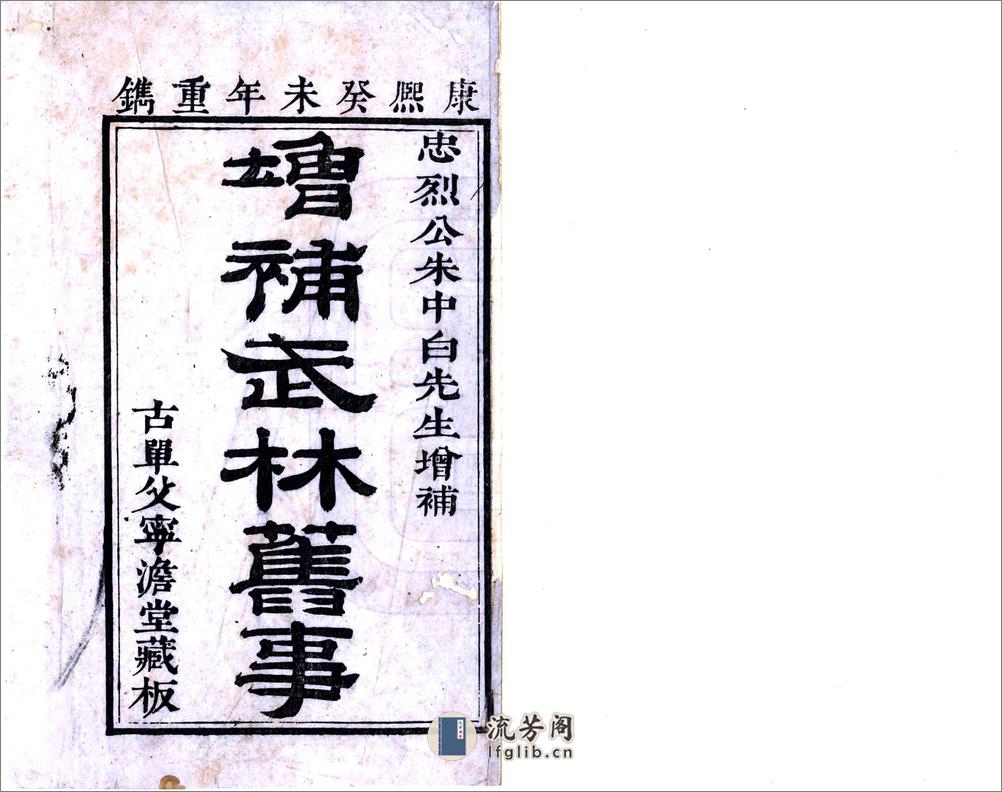 康熙癸未年重鐫
忠烈公朱中白先生增補
增補武林舊事
古單父寧澹堂藏板
流芳阁
lfglib.cn